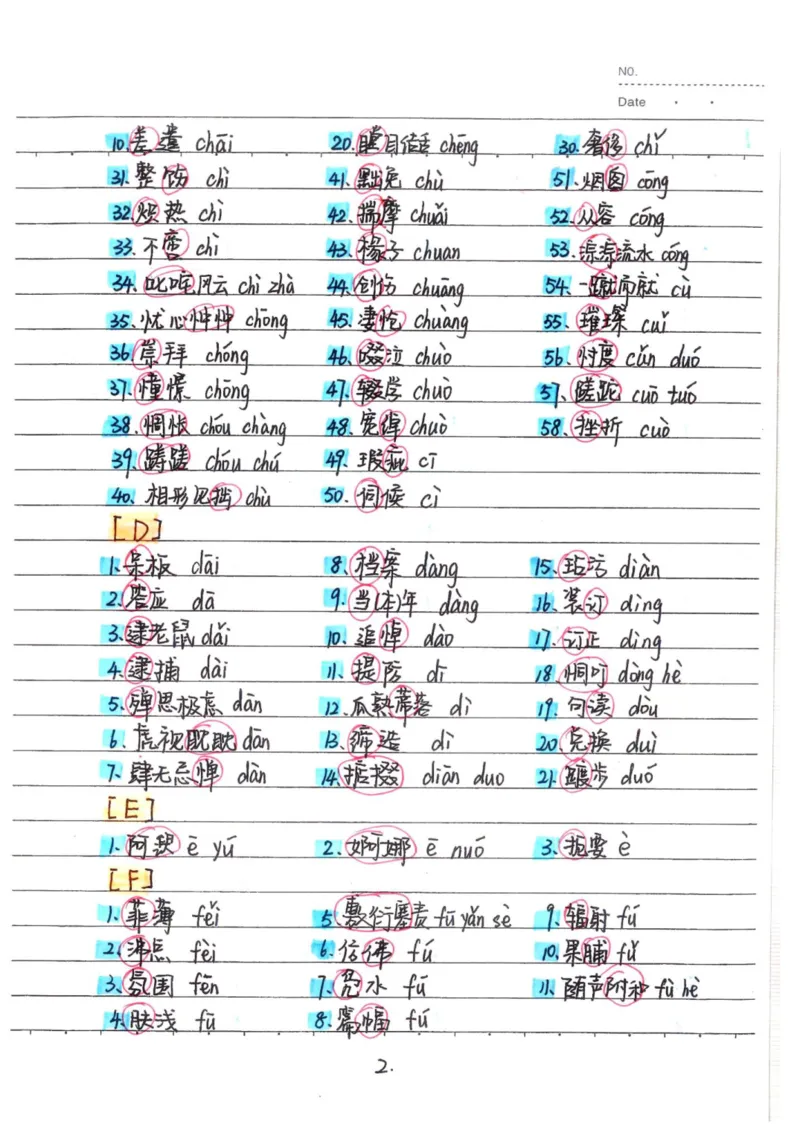 NO.
Date
10.差遣 chāi 20.瞠目结舌 chēng 30.奢侈 chǐ
31.整饬 chì 41.黜免 chù 51.烟囱 cōng
32.炽热 chì 42.揣摩 chuǎi 52.从容 cóng
33.不啻 chì 43.椽子 chuan 53.淙淙流水 cóng
34.叱咤风云 chì zhà 44.创伤 chuāng 54.一蹴而就 cù
35.忧心忡忡 chōng 45.凄怆 chuàng 55.璀璨 cuǐ
36.崇拜 chóng 46.啜泣 chuò 56.忖度 cǔn duó
37.憧憬 chōng 47.辍学 chuò 57.蹉跎 cuō tuó
38.惆怅 chóu chàng 48.宽绰 chuò 58.挫折 cuò
39.踌躇 chóu chú 49.瑕疵 cī
40.相形见拙 chù 50.伺候 cì
[D]
1.呆板 dāi 8.档案 dàng 15.玷污 diàn
2.答应 dā 9.当(本)年 dàng 16.装订 dìng
3.逮老鼠 dǎi 10.追悼 dào 17.订正 dìng
4.逮捕 dài 11.提防 dī 18.恫吓 dòng hè
5.殚思极虑 dān 12.瓜熟蒂落 dì 19.句读 dòu
6.虎视眈眈 dān 13.缔造 dì 20.兑换 duì
7.肆无忌惮 dàn 14.掂掇 diān duo 21.踱步 duó
[E]
1.阿谀 ē yú 2.婀娜 ē nuó 3.扼要 è
[F]
1.菲薄 fěi 5.敷衍塞责 fū yǎn sè 9.辐射 fú
2.沸点 fèi 6.仿佛 fú 10.果脯 fǔ
3.氛围 fēn 7.凫水 fú 11.随声附和 fù hè
4.肤浅 fū 8.篇幅 fú
2.